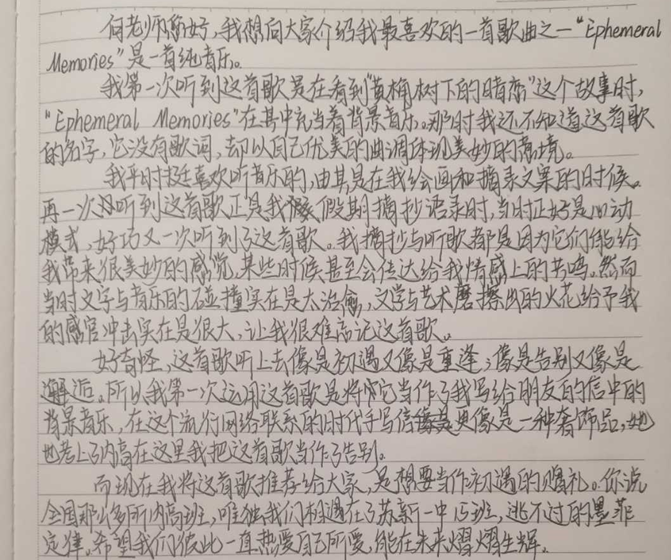 何老师您好，我想向大家介绍我最喜欢的一首歌曲之一“Ephemeral
Memories”是一首纯音乐。
我第一次听到这首歌是在看到“黄桷树下的暗恋”这个故事时，
“Ephemeral Memories”在其中充当着背景音乐。那时我还不知道这首歌
的名字，它没有歌词，却以自己优美的曲调体现美妙的意境。
我平时挺喜欢听音乐的，由其是在我绘画和摘录文案的时候。
再一次听到这首歌正是我假期摘抄语录时，当时正好是心动
模式，好巧又一次听到了这首歌。我摘抄与听歌都是因为它们能给
我带来很美妙的感觉，某些时候甚至会传达给我情感上的共鸣。然而
当时文字与音乐的碰撞实在是太治愈，文学与艺术磨擦出的火花给予我
的感官冲击实在是很大，让我很难忘记这首歌。
好奇怪，这首歌听上去像是初遇又像是重逢；像是告别又像是
邂逅。所以我第一次运用这首歌是将它当作了我写给朋友的信中的
背景音乐，在这个流行网络联系的时代手写信更像是一种奢饰品，她
也考上了内高在这里我把这首歌当作了告别。
而现在我将这首歌推荐给大家，是想要当作初遇的赠礼。你说
全国那么多所内高班，唯独我们相遇在了苏新一中班，逃不过的墨菲
定律。希望我们彼此一直热爱自己所爱，能在未来熠熠生辉。